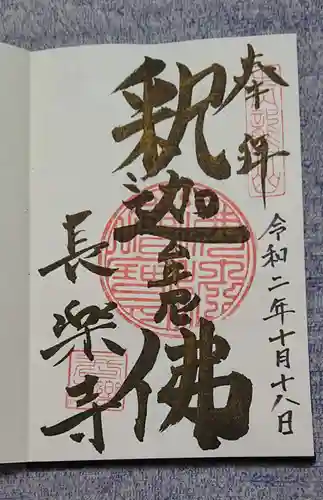 奉拝
令和二年十月十八日
釈迦牟尼佛
長樂寺